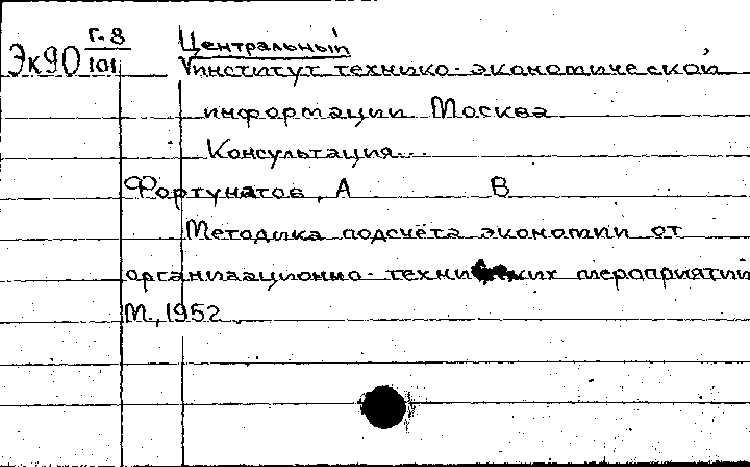 Эк90 Г.8/101
Центральный
институт технико-экономической
информации Москва
Консультация...
Фортунатов, А В
Методика подсчёта экономии от
организационно-технических мероприятий
М., 1952